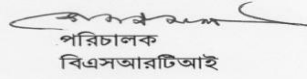 পরিচালক
বিএসআরটিআই